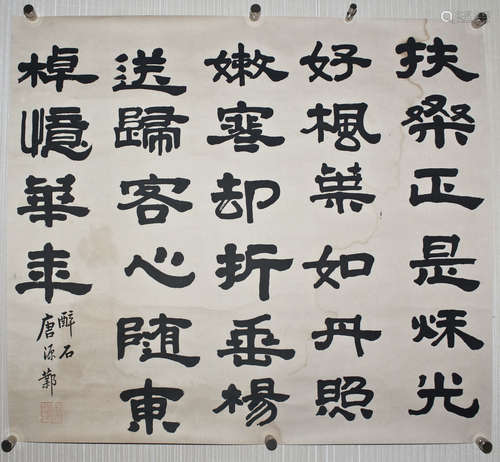 扶桑正是秌光
好楓葉如丹照
嫩寒却折垂楊
送歸客心隨東
棹憶華年
醉石
唐源鄴